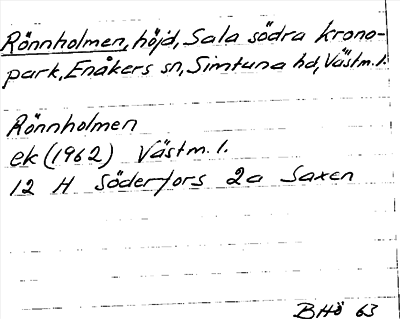 Rönnholmen, höjd, Sala södra krono-
park, Enåkers sn, Simtuna hd, Västm. l.
Rönnholmen
ek (1962) Västm. l.
12 H Söderfors 2a Saxen
BHö 63